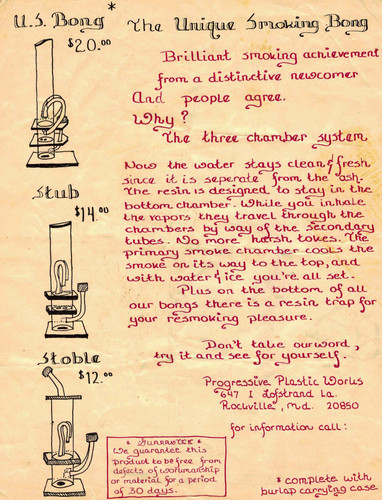 U.S. Bong *
$20.00
The Unique Smoking Bong
Brilliant smoking achievement
from a distinctive newcomer
And people agree.
Why?
The three chamber system
Now the water stays clean & fresh
since it is seperate from the ash.
The resin is designed to stay in the
bottom chamber. While you inhale
the vapors they travel through the
chambers by way of the secondary
tubes. No more harsh tokes. The
primary smoke chamber cools the
smoke on its way to the top, and
with water & ice you're all set.
Plus on the bottom of all
our bongs there is a resin trap for
your resmoking pleasure.
Stub
$14.00
Stoble
$12.00
Don't take our word,
try it and see for yourself.
Progressive Plastic Works
647 I Lofstrand La.
Rockville, Md. 20850
for information call:
* Guarantee *
We guarantee this
product to be free from
defects of workmanship
or material for a period
of 30 days.
* complete with
burlap carrying case